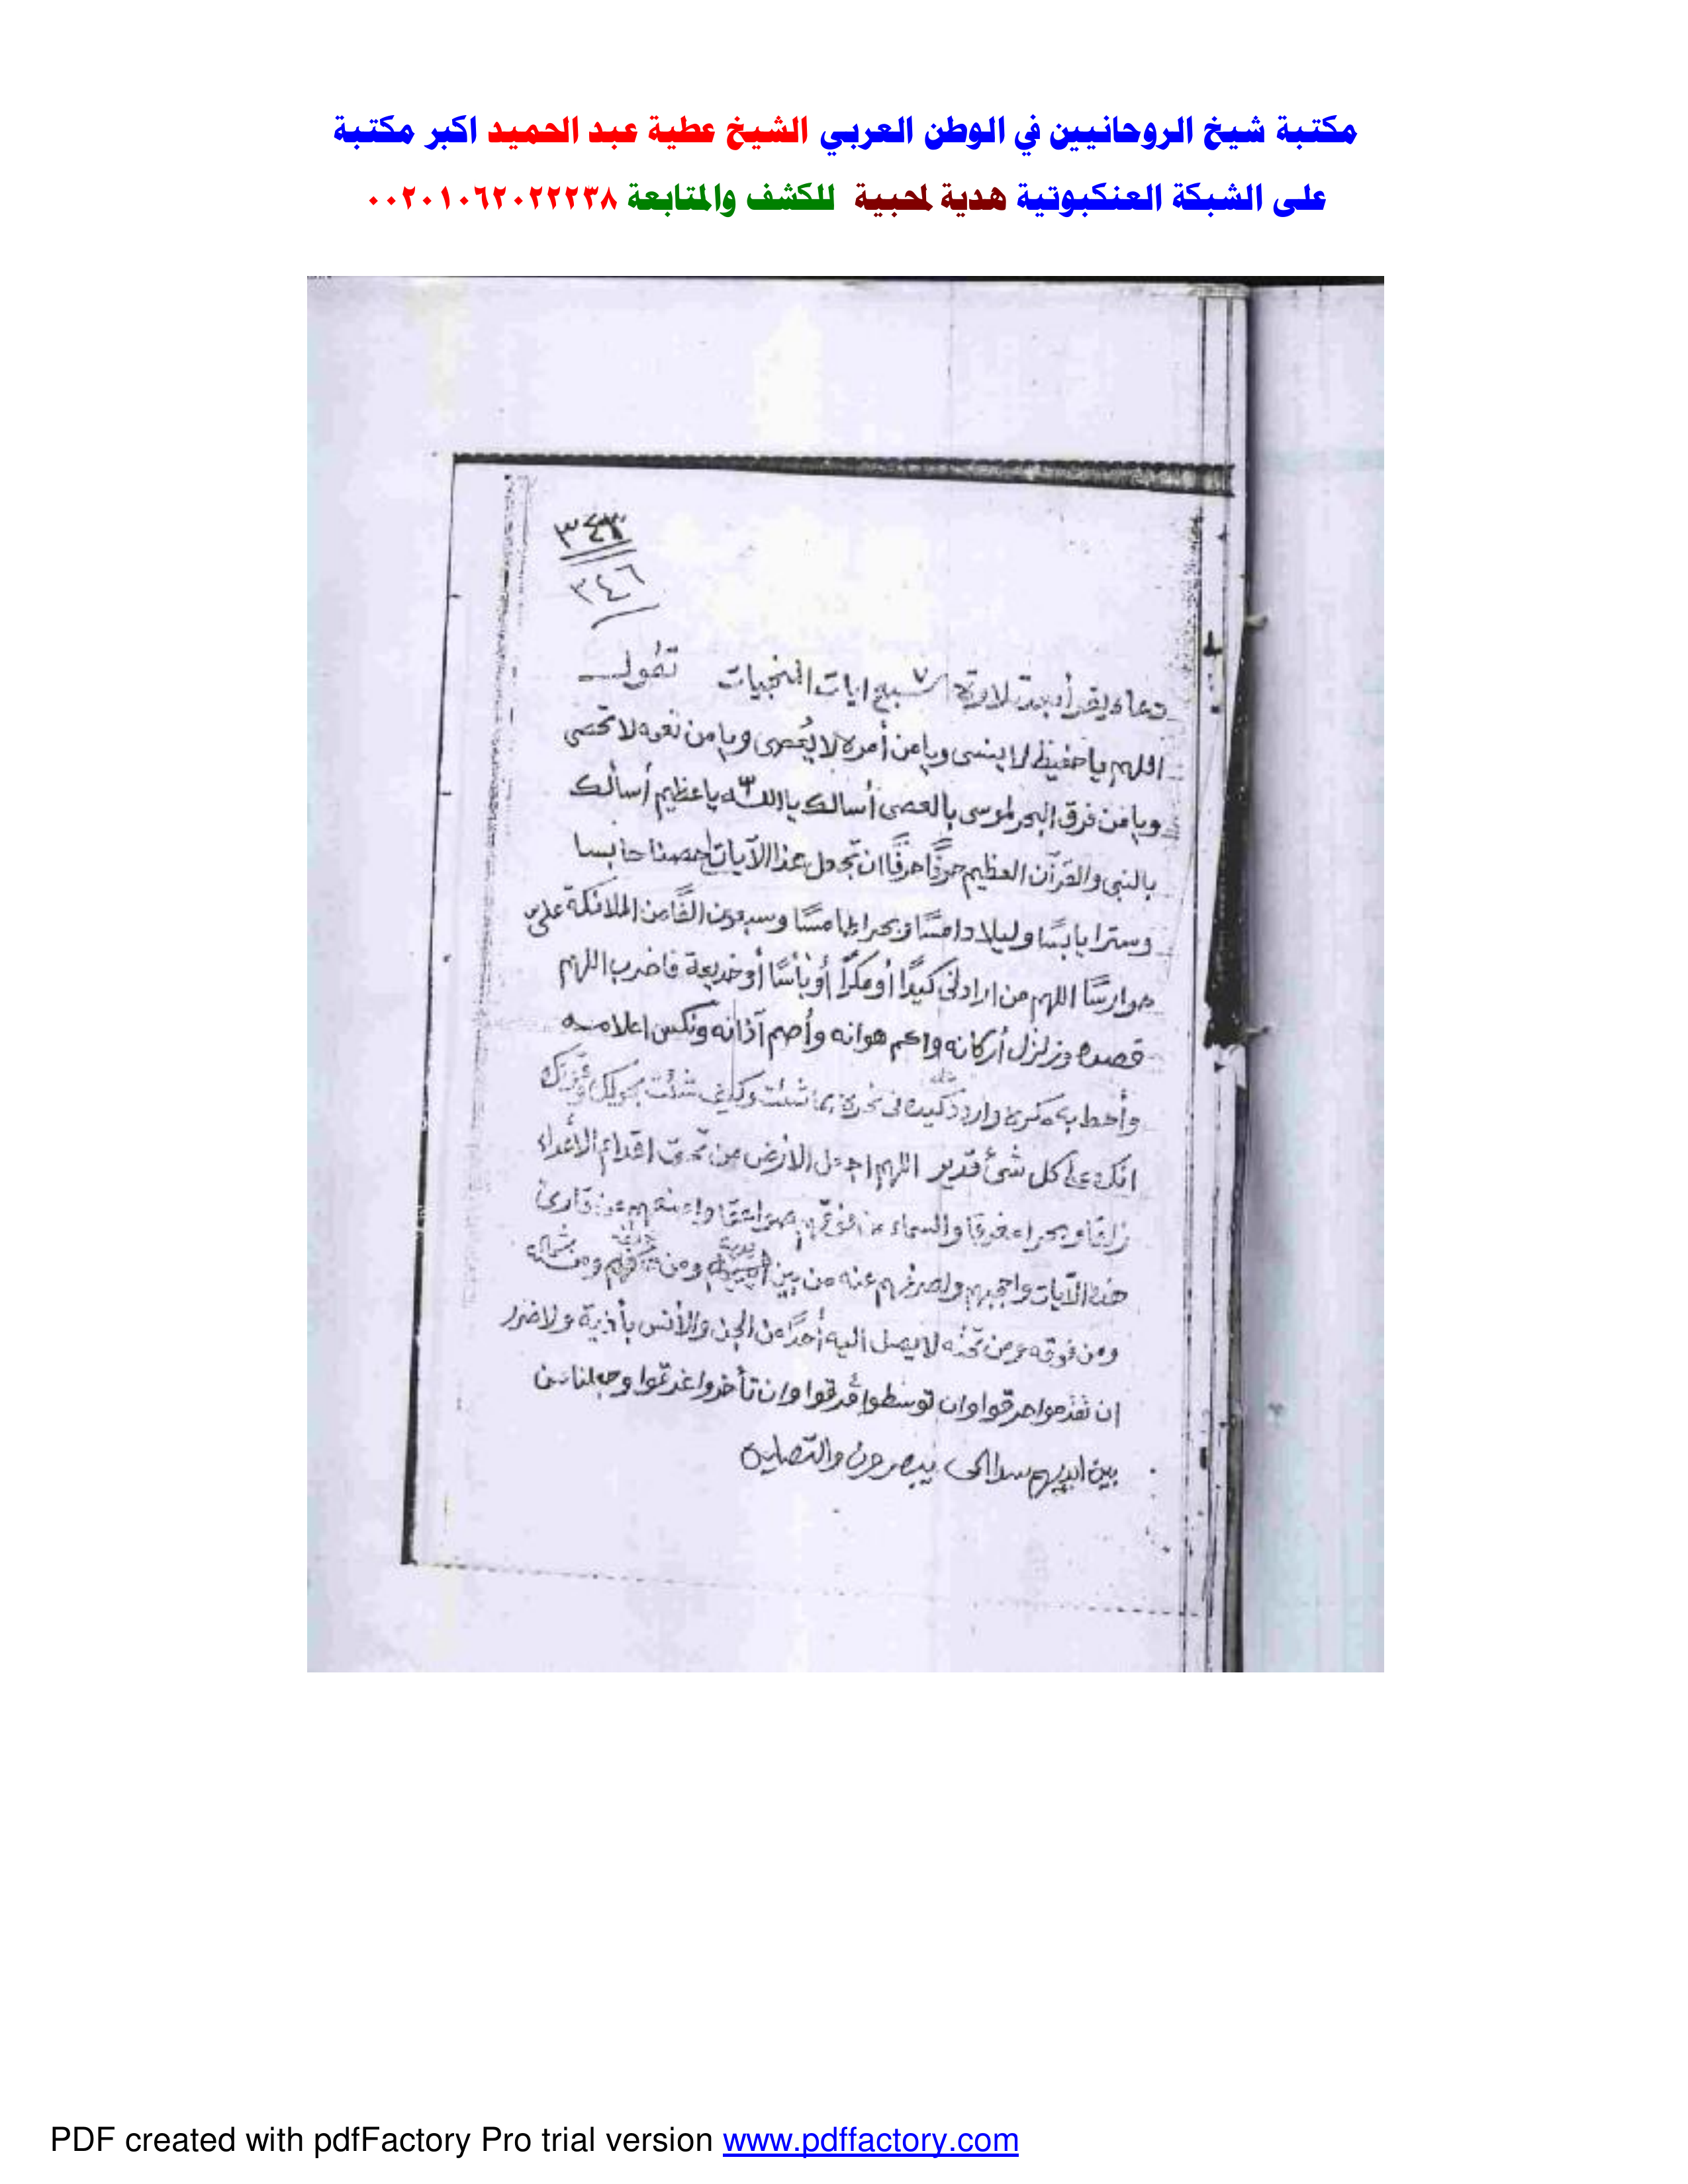 مكتبة شيخ الروحانيين في الوطن العربي الشيخ عطية عبد الحميد اكبر مكتبة
على الشبكة العنكبوتية هدية لمحبية للكشف والمتابعة ٠٠٢٠١٠٦٢٠٢٢٢٣٨
٣٤٦
دعاء يقرأ بعد تلاوة السبع ايات المنجيات تقول
اللهم ياحفيظ لا ينسى ويامن أمره لا يُعصى ويامن نعمه لا تحصى
ويامن فرق البحر لموسى بالعصى أسالك ياالله ياعظيم أسالك
بالنبى والقرآن العظيم حرفًا حرفًا ان تجعل هذا الآيات حصنا حابسا
وسترا يابسًا وليلا دامسًا وبحرا طامسًا وسبعون الفًا من الملائكة على
حوارسًا اللهم من ارادنى كيدًا أو مكرًا أو بأسًا أو خديعة فاضرب اللهم
قصده وزلزل أركانه واكم هوانه وأصم آذانه ونكس اعلامه
وأحط به مكره واردد كيده فى نحره بما شئت وكيف شئت بحولك وقوتك
انك على كل شئ قدير اللهم اجعل الارض من تحت اقدام الأعداء
زلقا وبحرا مغرقا والسماء من فوقهم صواعقا وامنعهم عن قارئ
هذا الآيات واحجبهم ولصرفهم عنه من بين ومن ومن شماله
ومن فوقه ومن تحته لا يصل اليه أحدًا من الجن والأنس بأذية ولا ضرر
ان تقدموا حرقوا وان توسطوا فرقوا وان تأخروا غرقوا وجعلنا من
بين ايديهم سدا الى يبصرون والتصلين
PDF created with pdfFactory Pro trial version www.pdffactory.com